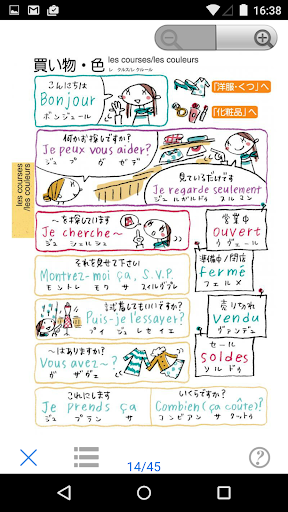 16:38
買い物・色
les courses/les couleurs
レ クルス/レ クルール
「洋服・くつ」へ
「化粧品」へ
こんにちは
Bonjour
ボンジュール
何かお探しですか?
Je peux vous aider?
ジュ プ ヴ ゼデ
見ているだけです
Je regarde seulement
ジュ ルガルドゥ スルマン
les courses
/les couleurs
〜を探しています
Je cherche〜
ジュ シェルシュ
営業中
ouvert
ウヴェール
それを見せて下さい
Montrez-moi ça, S.V.P.
モントレ モワ サ スィルヴプレ
準備中/閉店
fermé
フェルメ
試着してもいいですか?
Puis-je l'essayer?
プイ ジュ レセイエ
売り切れ
vendu
ヴァンデュ
〜はありますか?
Vous avez〜?
ヴ ザヴェ
セール
soldes
ソルドゥ
これにします
Je prends ça
ジュ プラン サ
いくらですか?
Combien(ça coûte)?
コンビアン サ クットゥ
14/45